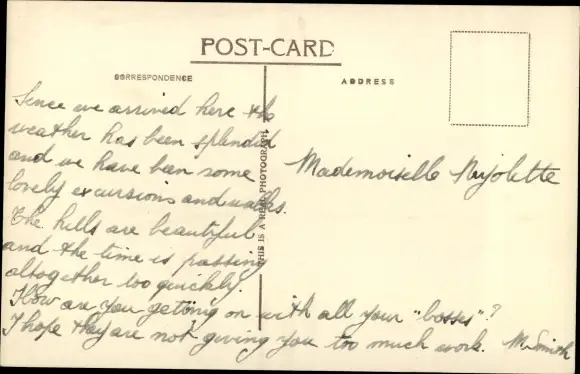 POST-CARD
CORRESPONDENCE
ADDRESS
THIS IS A REAL PHOTOGRAPH
Since we arrived here the
weather has been splendid
and we have been some
lovely excursions and walks.
The hills are beautiful
and the time is passing
altogether too quickly.
How are you getting on with all your "bosses"?
I hope they are not giving you too much work. M. Smith
Mademoiselle Nijolette